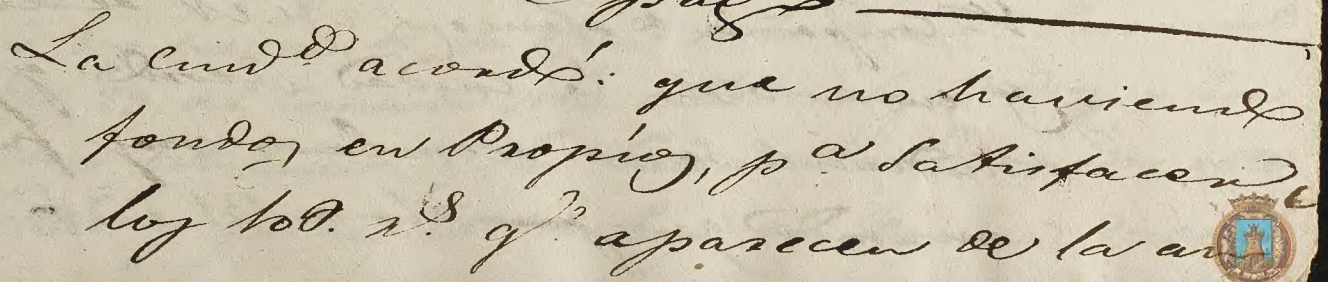 La Ciud.d acordó: que no haviendo
fondos en Propios, p.a Satisfacer
los r.s q.e aparecen de la